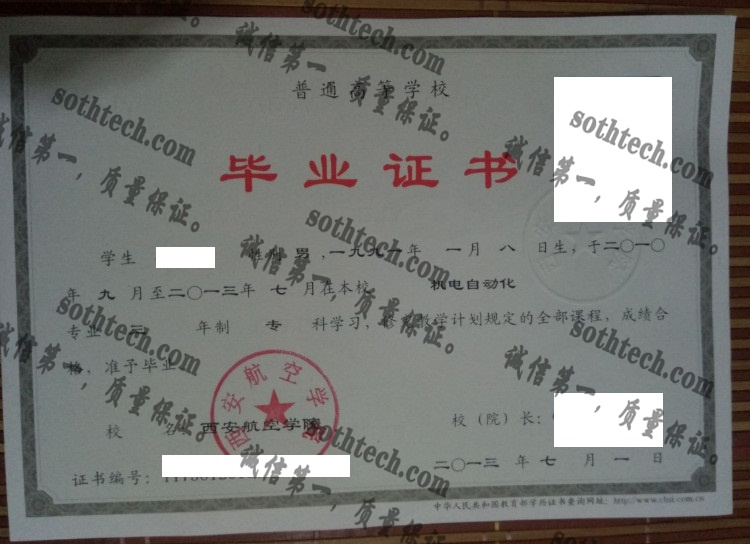 普通高等学校
毕业证书
学生 性别 男，一九九一年 一月 八 日生，于二〇一〇
年 九 月至二〇一三年 七 月在本校 机电自动化
专业 三 年制 专 科学习，修完教学计划规定的全部课程，成绩合
格，准予毕业
校 名：西安航空学院 校（院）长：
二〇一三 年 七 月 一 日
证书编号：
中华人民共和国教育部学历证书查询网址：http://www.chsi.com.cn
西安航空学院
sothtech.com
诚信第一，质量保证。
sothtech.com
诚信第一，质量保证。
sothtech.com
诚信第一，质量保证。
sothtech.com
诚信第一，质量保证。
sothtech.com
诚信第一，质量保证。
sothtech.com
诚信第一，质量保证。
sothtech.com
诚信第一，质量保证。
sothtech.com
诚信第一，质量保证。